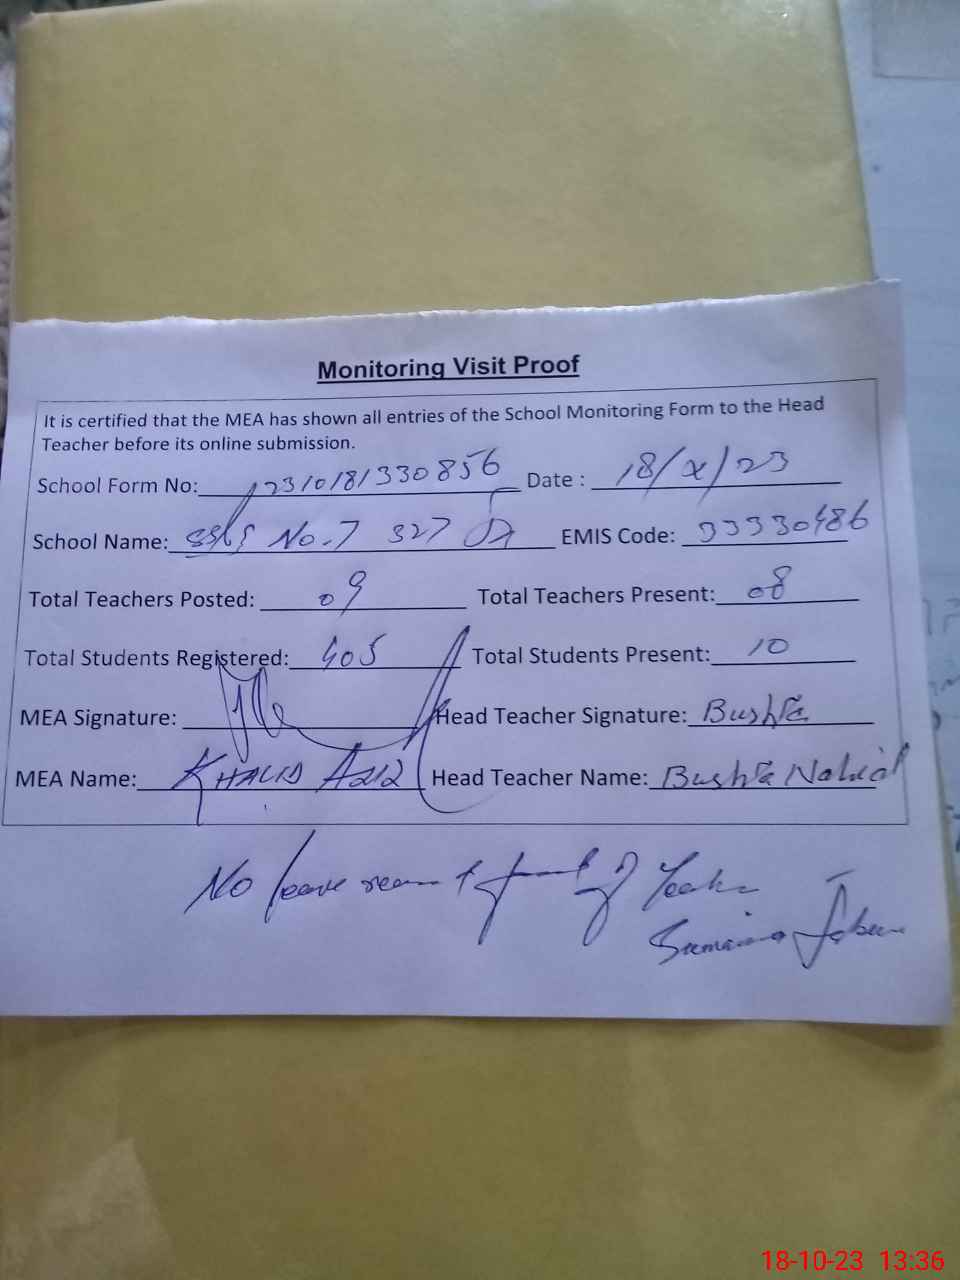 Monitoring Visit Proof
It is certified that the MEA has shown all entries of the School Monitoring Form to the Head
Teacher before its online submission.
School Form No: 12310181330856 Date : 18/X/23
School Name: No.7 327 EMIS Code: 33330486
Total Teachers Posted: 09 Total Teachers Present: 08
Total Students Registered: 405 Total Students Present: 10
MEA Signature: Head Teacher Signature: Bushra
MEA Name: KHALID AZIZ Head Teacher Name: Bushra
No leave of
Sumaira
18-10-23 13:36